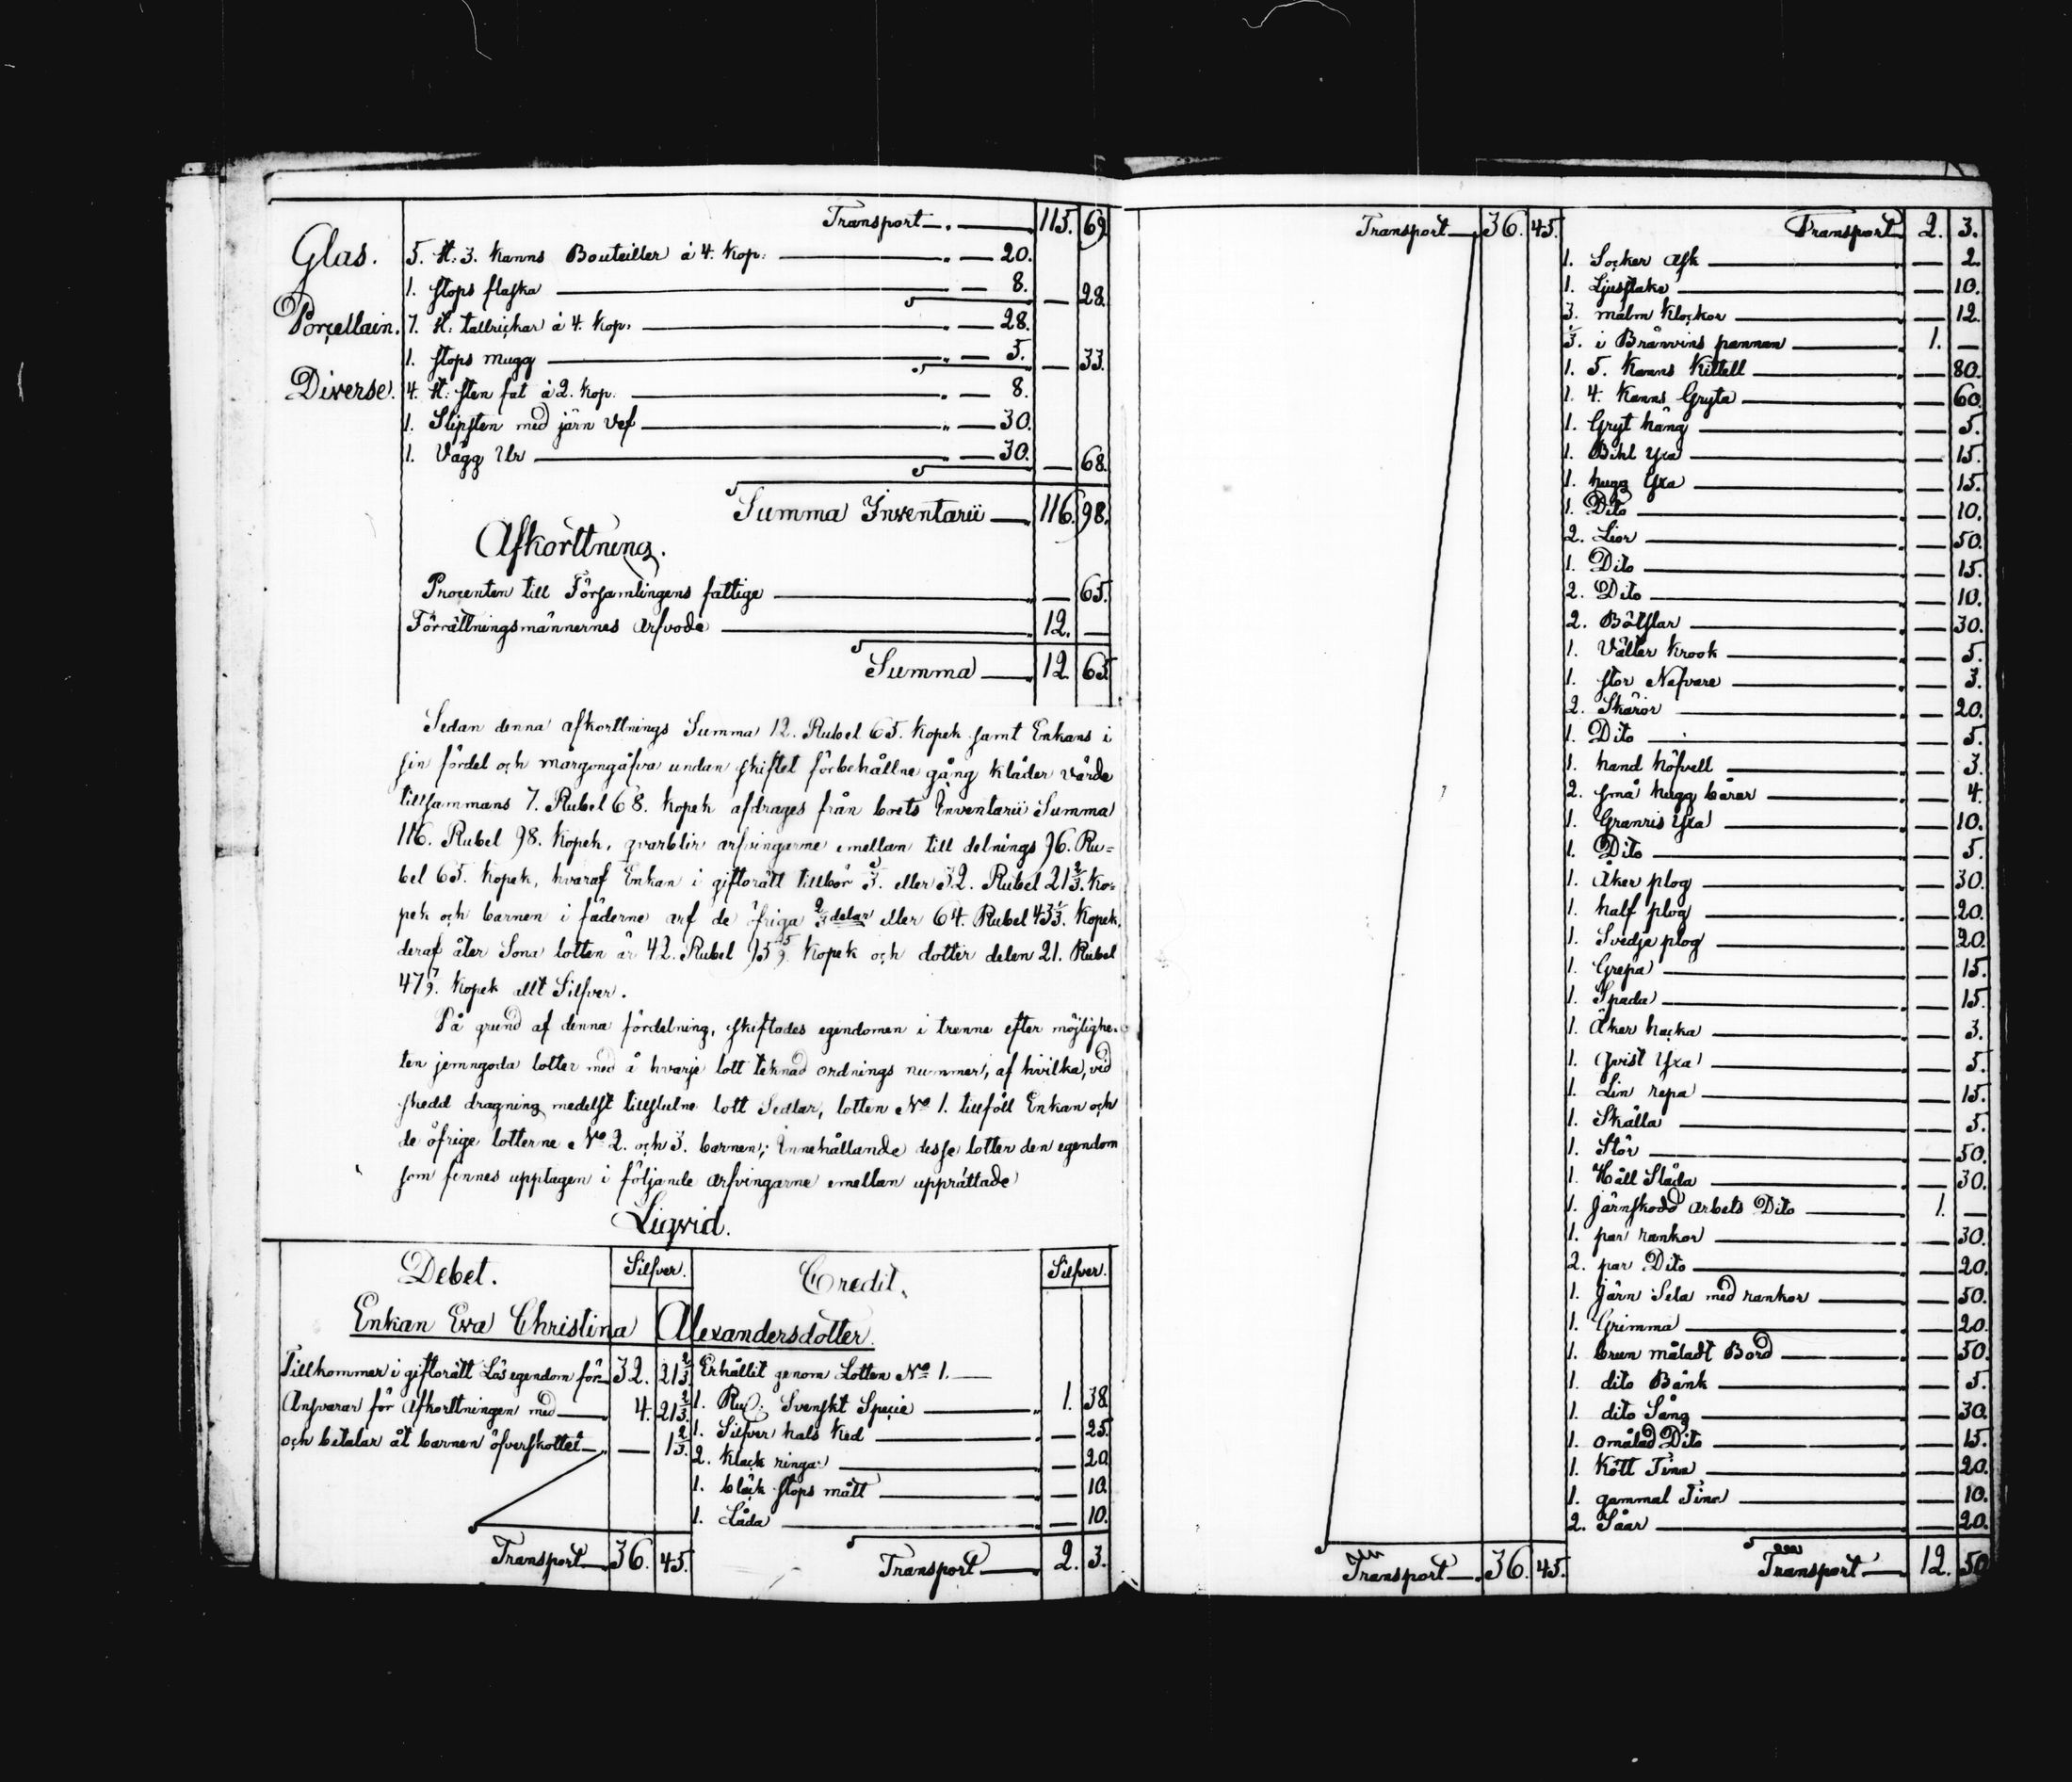 Transport 115. 69
Glas. 5. st: 3. kanns Bouteiller à 4. kop: 20.
1. stops flaska 8. — 28.
Porcellain. 7. st: tallrickar à 4. kop: 28.
1. stops mugg 5. — 33.
Diverse. 4. st: sten fat à 2. kop. 8.
1. Slipsten med järn vef 30.
1. Vägg Ur 30. — 68.
Summa Inventarii 116. 98.
Afkorttning.
Procenten till Församlingens fattige — 65.
Förrättningsmännernes arfvode 12. —
Summa 12. 65.
Sedan denna afkorttnings Summa 12. Rubel 65. kopek samt Enkans i
sin fördel och morgongåfva undan skiftet förbehållne gång kläder värde
tillsammans 7. Rubel 68. kopek afdrages från boets Inventarii Summa
116. Rubel 98. kopek, qvarblir arfvingarne emellan till delnings 96. Ru=
bel 65. kopek, hvaraf Enkan i giftorätt tillhör 1/3. eller 32. Rubel 21 2/3. ko=
pek och barnen i fäderne arf de öfriga 2/3 delar eller 64. Rubel 43 1/3. kopek,
deraf åter Sona lotten är 42. Rubel 95 5/9. kopek och dotter delen 21. Rubel
47 7/9. kopek allt Silfver.
På grund af denna fördelning, skiftades egendomen i trenne efter möjlighe=
ten jemngoda lotter med å hvarje lott teknad ordnings nummer, af hvilka, vid
skedd dragning medelst tillslutne lott Sedlar, lotten No 1. tillföll Enkan och
de öfrige lotterne No 2. och 3. barnen; Innehållande desse lotter den egendom
som finnes upptagen i följande arfvingarne emellan upprättade
Liqvid.
Debet. Silfver. Credit. Silfver.
Enkan Eva Christina Alexandersdotter.
Tillkommer i giftorätt Lös egendom för 32. 21 2/3.
Ansvarar för Afkorttningen med 4. 21 2/3.
och betalar åt barnen öfverskottet — 1 2/3.
Transport 36. 45.
Erhållit genom Lotten No 1.
1. Rd. Svenskt Specie 1. 38.
1. Silfver hals ked — 25.
2. klack ringar — 20.
1. bläck stops mått — 10.
1. Låda — 10.
Transport 2. 3.
Transport 36. 45.
Transport 36. 45.
Transport 2. 3.
1. Socker Ask — 2.
1. Ljusstake — 10.
3. malm klockor — 12.
1/3. i Bränvins pannan 1. —
1. 5. kanns kittell — 80.
1. 4. kanns Gryta — 60.
1. Gryt häng — 5.
1. Bihl yxa — 15.
1. hugg yxa — 15.
1. Dito — 10.
2. Lior — 50.
1. Dito — 15.
2. Dito — 10.
2. Bötslar — 30.
1. Välter krook — 5.
1. stor Nafvare — 3.
2. Skäror — 20.
1. Dito — 5.
1. hand höfvell — 3.
2. små hugg bårar — 4.
1. Granris yxa — 10.
1. Dito — 5.
1. Åker plog — 30.
1. half plog — 20.
1. Svedje plog — 20.
1. Grepa — 15.
1. Spada — 15.
1. Åker hacka — 3.
1. Qvist yxa — 5.
1. Lin repa — 15.
1. Skälla — 5.
1. Stör — 50.
1. Håll Släda — 30.
1. Järnskodd arbets Dito 1. —
1. par rankor — 30.
2. par Dito — 20.
1. Järn Sela med rankor — 50.
1. Grimma — 20.
1. brun måladt Bord — 50.
1. dito Bänk — 5.
1. dito Säng — 30.
1. omålad Dito — 15.
1. kött Tina — 20.
1. gammal Tina — 10.
2. Såar — 20.
Transport 12. 50